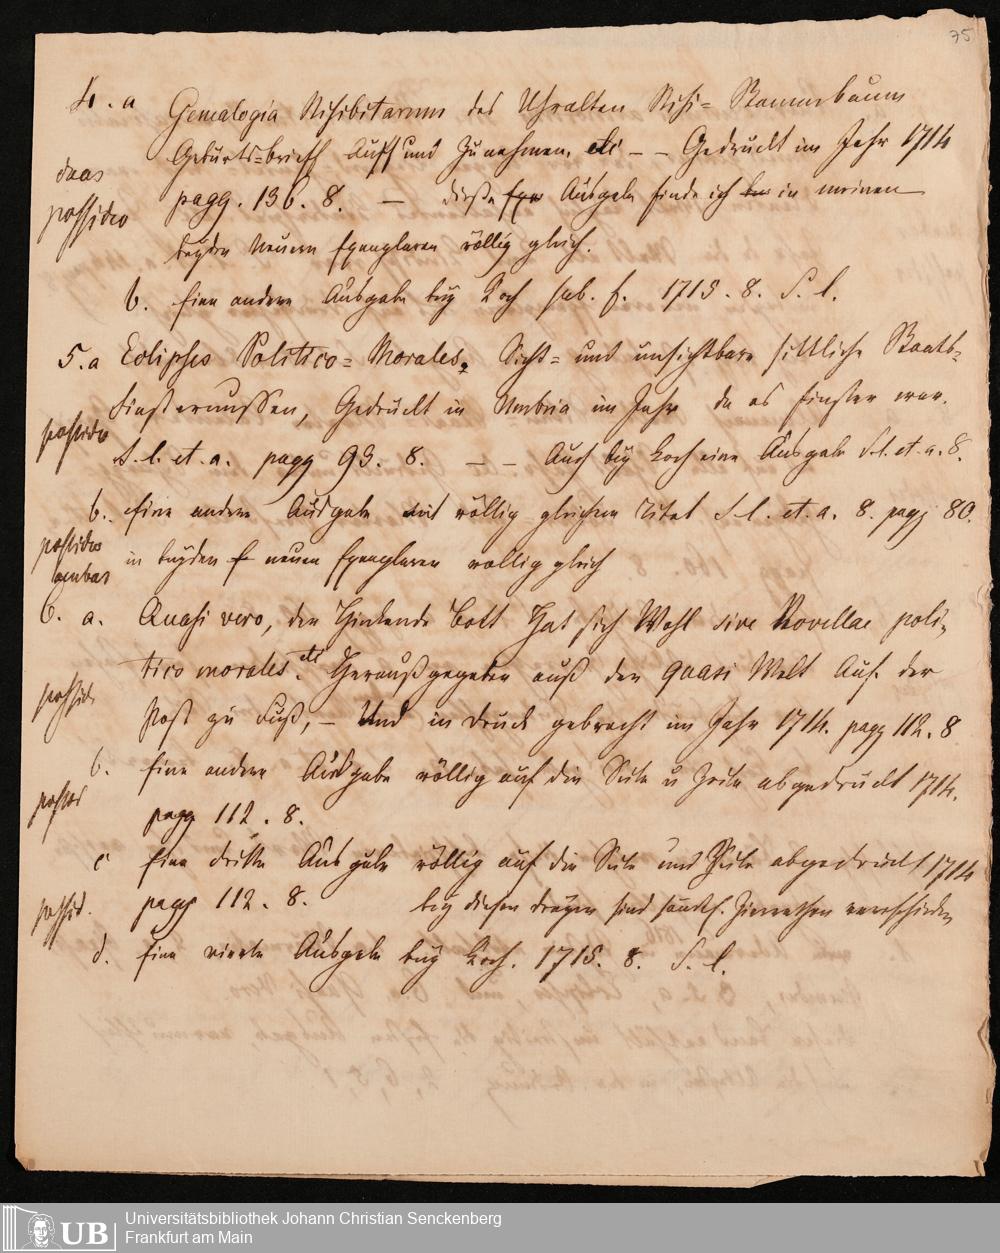 75
4. a Genealogia Nisibitarum des Uhralten Nisi= Stammbaum
Geburts=brieff Auff und Zunehmen. etc — — Gedruckt im Jahr 1714
duas possideo
pagg. 136. 8. — diese Ausgabe finde ich in meinen
beyden neuern Exemplaren völlig gleich.
b. Eine andere Ausgabe bey Koch sub. f. 1715. 8. S. l.
5. a Eclipses Politico= Morales, Sicht= und unsichtbare sittliche Staats=
Finsternussen, Gedruckt in Umbria im Jahr da es finster war.
possideo
S. l. et. a. pagg 93. 8. — — Auch bey Koch eine Ausgabe S. l. et. a. 8.
b. Eine andere Ausgabe mit völlig gleichem Titel S l. et. a. 8. pagg 80.
possideo ambas
in beyden neuen Exemplaren vollig gleich
6. a. Quasi vero, der Hinkende Bott Hat sich Wohl sive Novellae poli=
tico morales etc. Heraußgegeben auß der quasi Welt Auf der
possid.
Post zu Fuß, — Und in Druck gebracht im Jahr 1714. pagg 112. 8
b. Eine andere Ausgabe völlig auf die Seite u Zeile abgedruckt 1714.
possid
pagg 112. 8.
c Eine dritte Ausgabe völlig auf die Seite und Zeile abgedruckt 1714
possid.
pagg 112. 8. bey diesen dreyen sind Zierrathen verschieden
d. Eine vierte Ausgabe bey Koch. 1715. 8. S. l.
UB Universitätsbibliothek Johann Christian Senckenberg
Frankfurt am Main